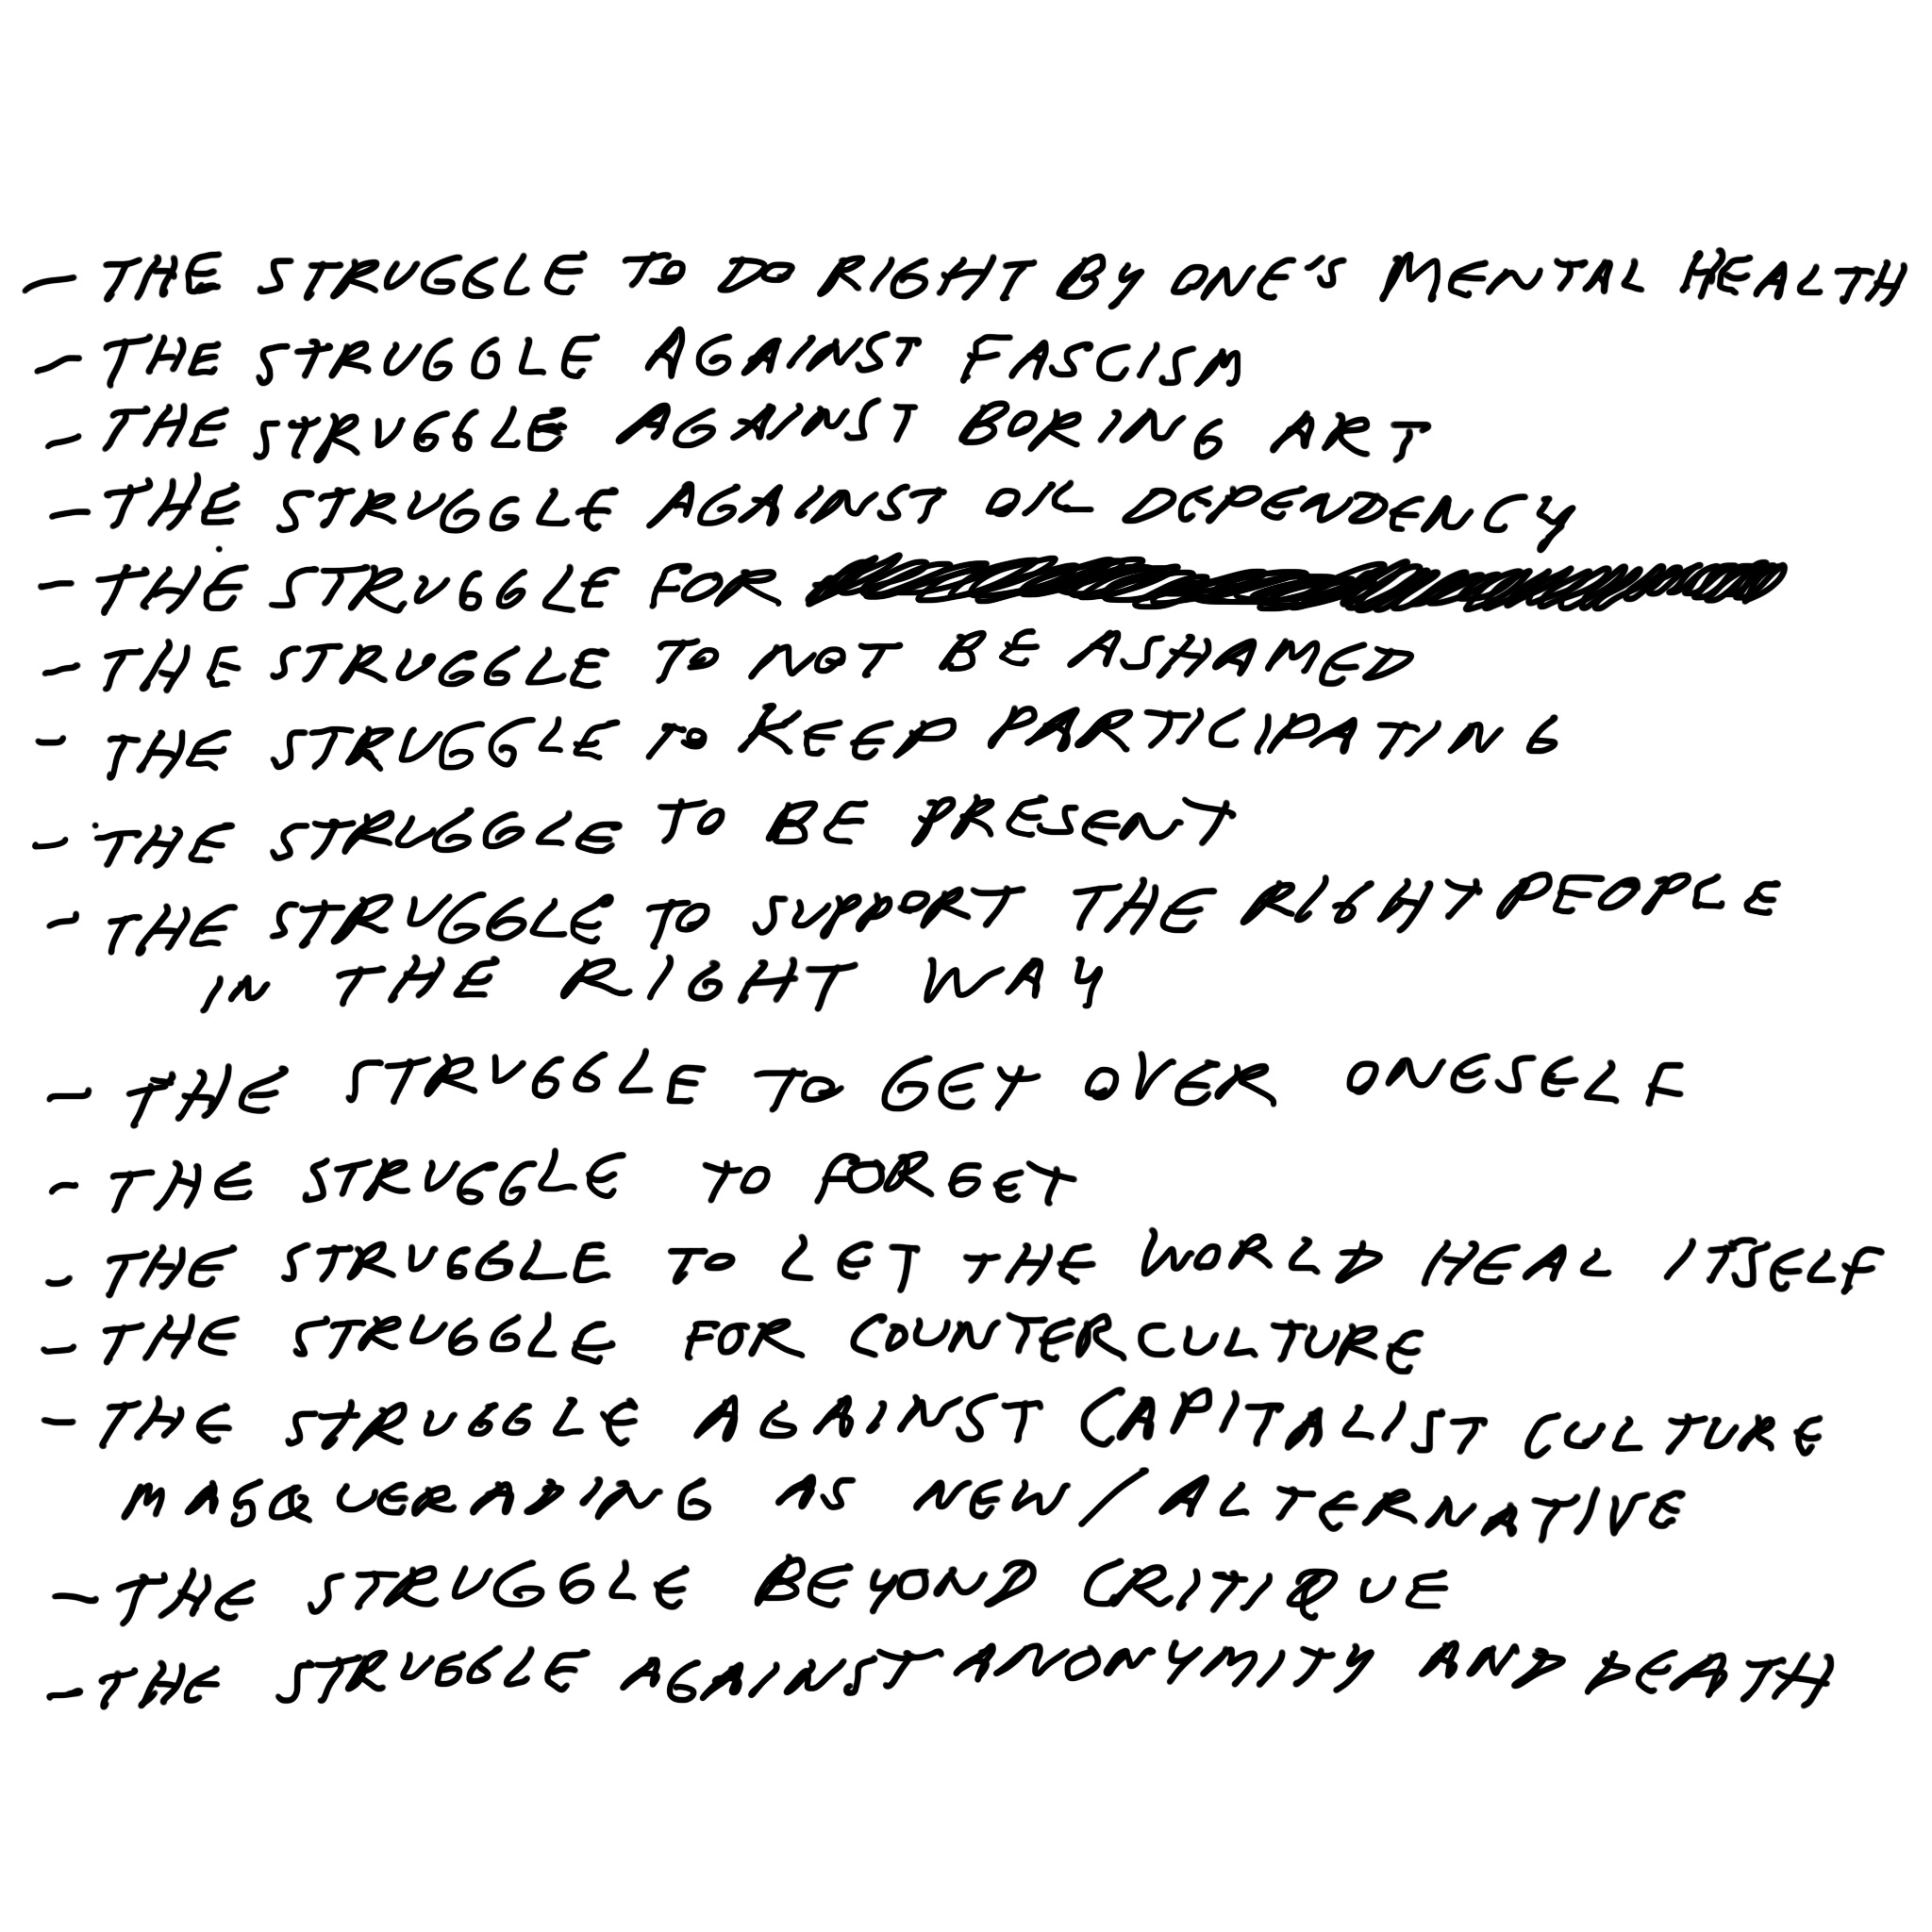 - THE STRUGGLE TO DO RIGHT BY ONE'S MENTAL HEALTH
- THE STRUGGLE AGAINST FASCISM
- THE STRUGGLE AGAINST BORING ART
- THE STRUGGLE AGAINST OIL DEPENDENCY
- THE STRUGGLE FOR
- THE STRUGGLE TO NOT BE ASHAMED
- THE STRUGGLE TO KEEP PARTICIPATING
- THE STRUGGLE TO BE PRESENT
- THE STRUGGLE TO SUPPORT THE RIGHT PEOPLE
IN THE RIGHT WAY
- THE STRUGGLE TO GET OVER ONESELF
- THE STRUGGLE TO FORGET
- THE STRUGGLE TO LET THE WORLD HEAL ITSELF
- THE STRUGGLE FOR COUNTERCULTURE
- THE STRUGGLE AGAINST CAPITALIST CULTURE
MASQUERADING AS NEW/ALTERNATIVE
- THE STRUGGLE BEYOND CRITIQUE
- THE STRUGGLE AGAINST ANONYMITY AND DEATH